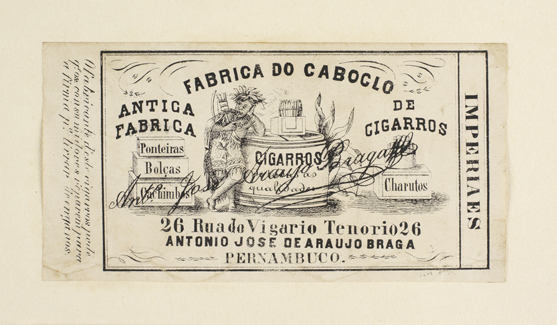 FABRICA DO CABOCLO
ANTIGA
FABRICA
DE
CIGARROS
Ponteiras
Bolças
Cachimbos
CIGARROS
qualidades
Charutos
Antº José Araujo Braga
26 Rua do Vigario Tenorio 26
ANTONIO JOSE DE ARAUJO BRAGA
PERNAMBUCO.
IMPERIAES
O fabricante destes cigarros